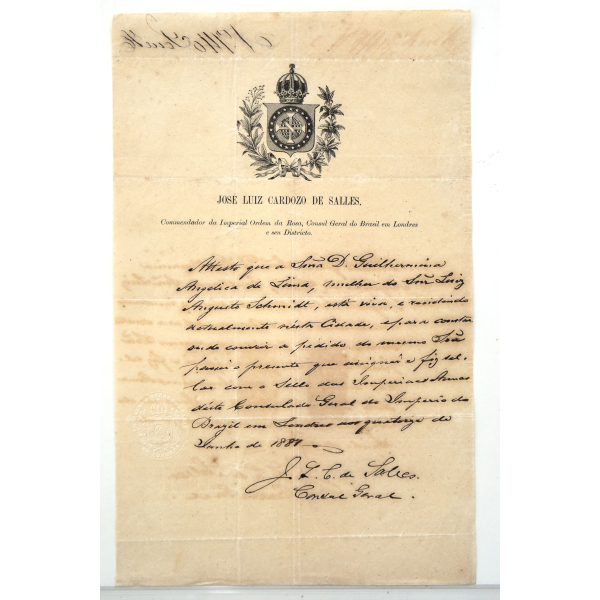 JOSÉ LUIZ CARDOZO DE SALLES,
Commendador da Imperial Ordem da Rosa, Consul Geral do Brasil em Londres
e seu Districto.
Attesto que a Snra D. Guilhermina
Angelica de Lima, mulher do Snr Luiz
Augusto Schmidt, está viva, e residindo
actualmente nesta Cidade, e para constar
onde convier a pedido da mesma Snra
passei o presente que assignei e fiz sel-
lar com o Sello das Imperiaes Armas
deste Consulado Geral do Imperio do
Brazil em Londres aos quatorze de
Junho de
J. L. C. de Salles.
Consul Geral.